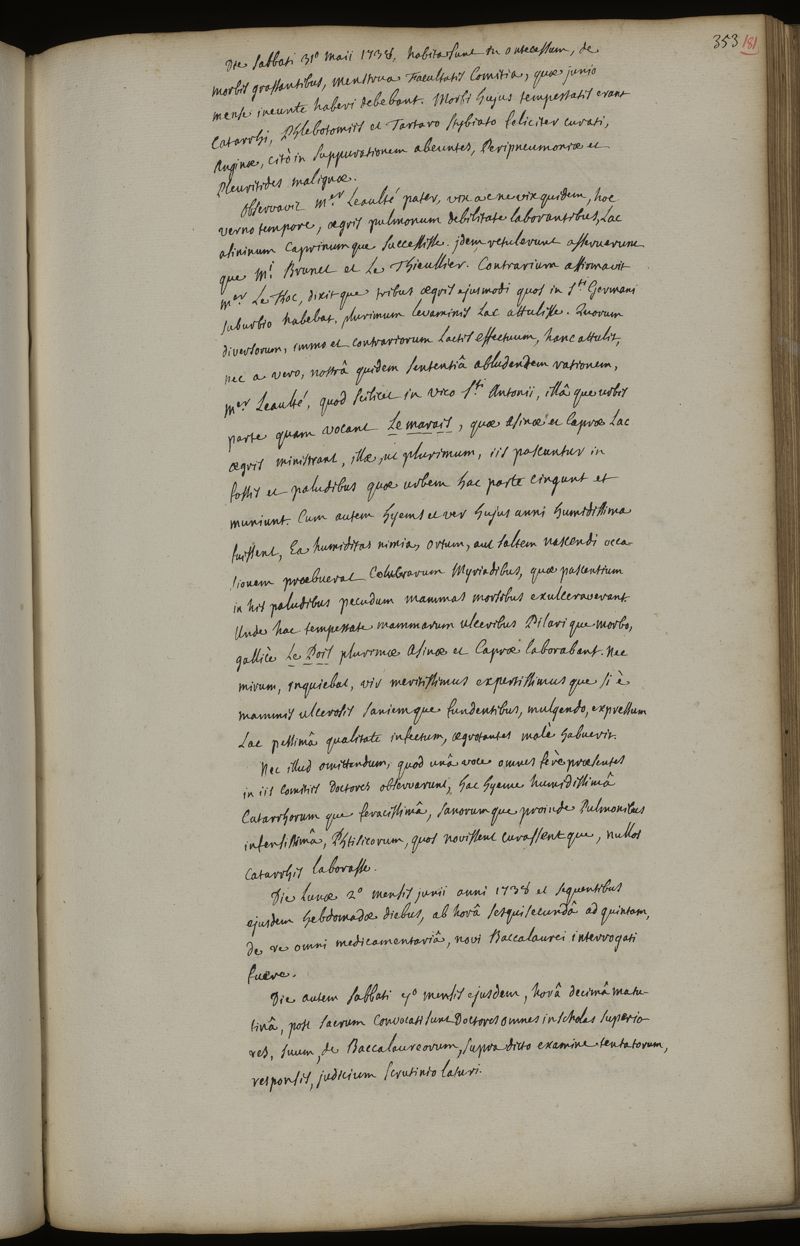 353 181
Die Sabbati 31° Maii 1738, habita sunt in antecessum, de
morbis grassantibus, menstrua Facultatis Comitia, quæ junio
mense ineunte haberi debebant. Morbi hujus tempestatis erant
Catarrhi, Phlebotomiis et Tartaro stybiato feliciter curati,
Anginæ, citò in suppurationem abeuntes, Peripneumoniæ et
Pleuritides malignæ.
Observavit M.er Leaulté pater, vix ac ne vix quidem, hoc
verno tempore, ægris pulmonum debilitate laborantibus, Lac
asininum Caprinumque successisse. jdem retulerunt asseruerunt
que M.i Brunet et Le Thieullier. Contrarium affirmavit
M.er Le Hoc, dixitque tribus ægris ejusmodi quos in S.ti Germani
suburbio habebat, plurimum levaminis Lac attulisse. Quorum
diversorum, immo et contrariorum Lactis effectuum, hanc attulit,
nec a vero, nostrâ quidem sententiâ abludendem rationem,
M.er Leaulté, quod scilicet in vico S.ti Antonii, illâque urbis
parte quam vocant Le marais, quæ Asinæ et Capræ Lac
ægris ministrant, illæ, ut plurimum, iis pascuntur in
fossis et paludibus quæ urbem hac parte cingunt et
muniunt. Cum autem hyems et ver hujus anni humidissima
fuissent, Ea humiditas nimia, ortum, aut saltem nascendi occa
sionem præbuerat Colubrarum Myriadibus, quæ pascentium
in his paludibus pecudum mammas morsibus exulceraverant.
Unde hac tempestate mammarum ulceribus Pilarique morbo,
gallicè Le Poil plurimæ Asinæ et Capræ laborabant. Nec
mirum, inquiebat, vir meritissimus expertissimusque si è
mammis ulcerosis saniemque fundentibus, mulgendo, expressum
Lac pessimâ qualitate infectum, ægrotantes malè habuerit.
Nec illud omittendum, quod unâ voce omnes ferè præsentes
in iis Comitiis Doctores observarunt, hac hyeme humidissimâ
Catarrhorumque feracissimâ, sanorumque proinde Pulmonibus
infensissimâ, Phtisicorum, quos novissent curassentque, nullos
Catarrhis laborasse.
Die Lunæ 2° mensis junii anni 1738 et sequentibus
ejusdem hebdomadæ diebus, ab horâ sesquisecundâ ad quintam,
de re omni medicamentariâ, novi Baccalaurei interrogati
fuere.
Die autem Sabbati 7° mensis ejusdem, horâ decimâ matu-
tinâ, post sacrum Convocati sunt Doctores omnes in scholas superio
res, suum, de Baccalaureorum, supra dicto examine tentatorum,
responsis, judicium scrutinio laturi.